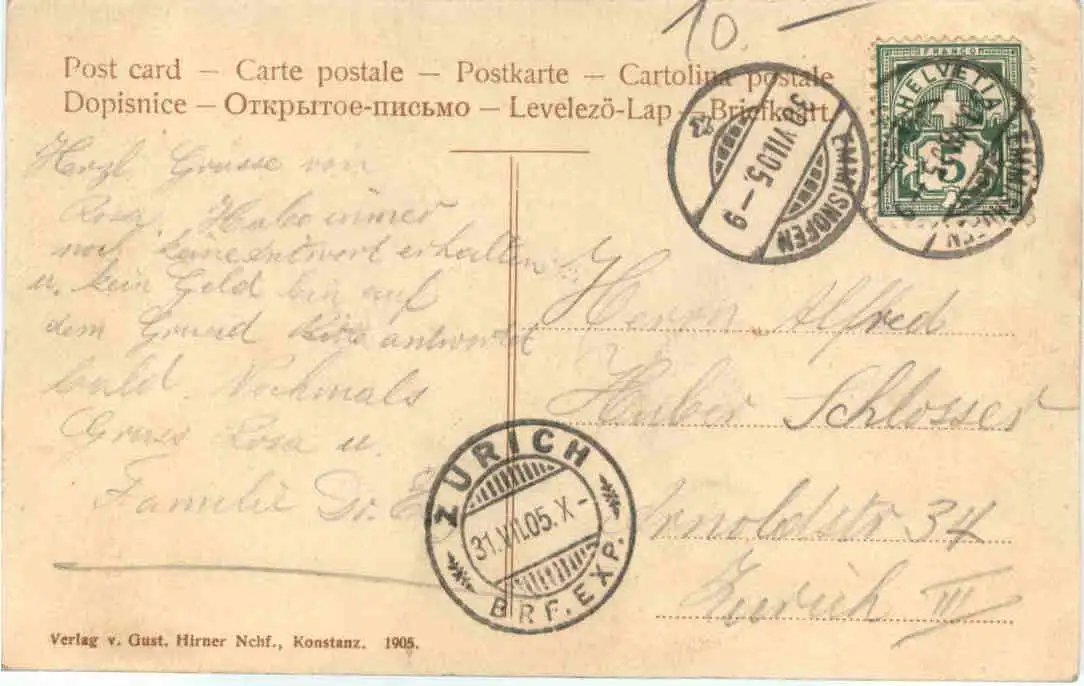 10.—
Post card – Carte postale – Postkarte – Cartolina postale
Dopisnice – Открытое-письмо – Levelező-Lap – Briefkaart
FRANCO
HELVETIA
5
EMMISHOFEN
30.VII.05.–9
EMMISHOFEN
Herzl. Grüsse von
Rosa. Habe immer
noch keine antwort erhalten
u. kein Geld bin auf
dem Grund bitte antwortet
bald. Nochmals
Gruss Rosa u.
Familie
Herrn Alfred
Huber Schlosser
Arnoldstr 34
Zürich III
ZÜRICH
31.VII.05.X–
BRF. EXP.
Verlag v. Gust. Hirner Nchf., Konstanz. 1905.